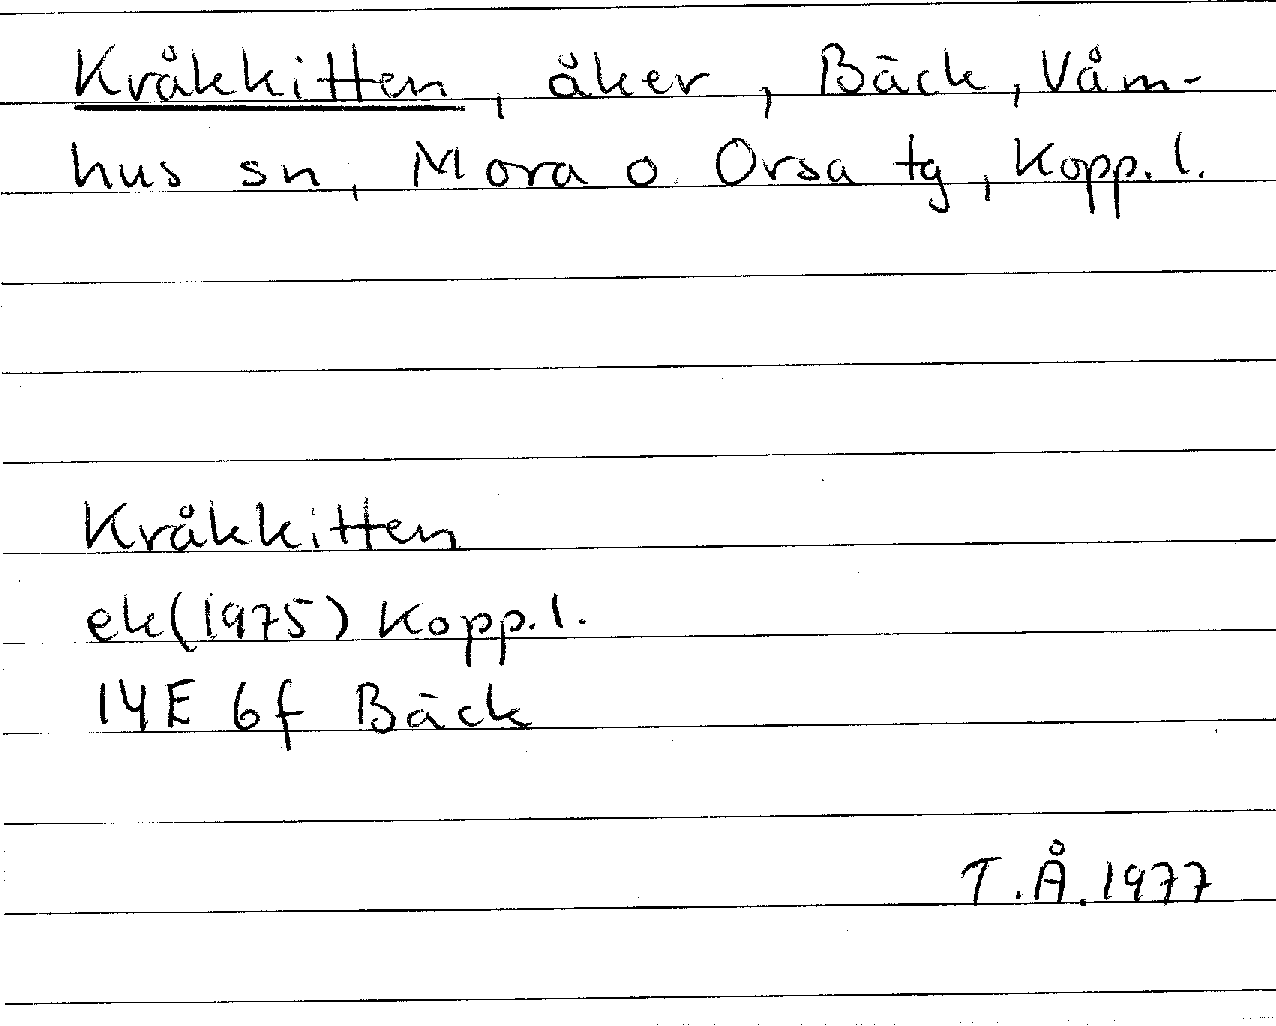 Kråkkitten, åker, Bäck, Våm-
hus sn, Mora o Orsa tg, Kopp. l.
Kråkkitten
ek (1975) Kopp. l.
14E 6f Bäck
T.Å. 1977